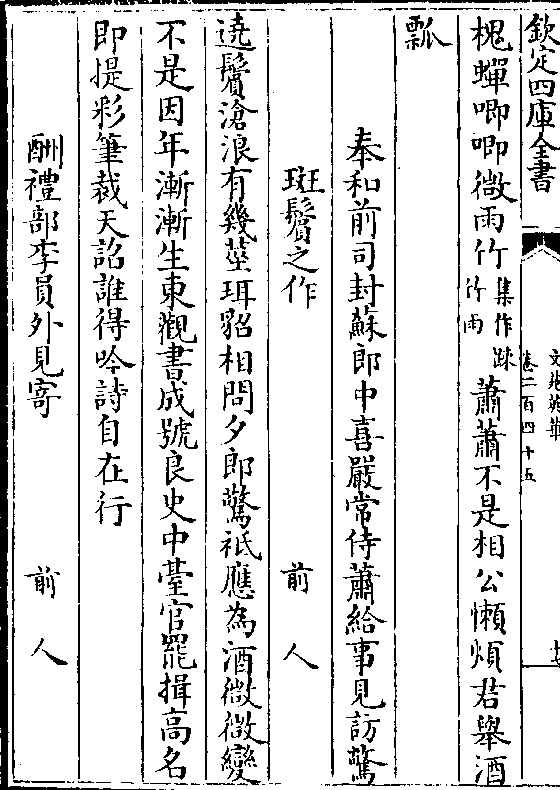 欽定四庫全書
文苑英華
卷二百四十五
槐蟬唧唧微雨竹集作踈竹雨蕭蕭不是相公懶煩君舉酒
瓢
奉和前司封蘇郎中喜嚴常侍蕭給事見訪驚
斑鬢之作 前人
遶鬢滄浪有幾莖珥貂相問夕郎驚祗應為酒微微變
不是因年漸漸生東觀書成號良史中臺官罷揖高名
即提彩筆裁天詔誰得吟詩自在行
酬禮部李員外見寄 前人